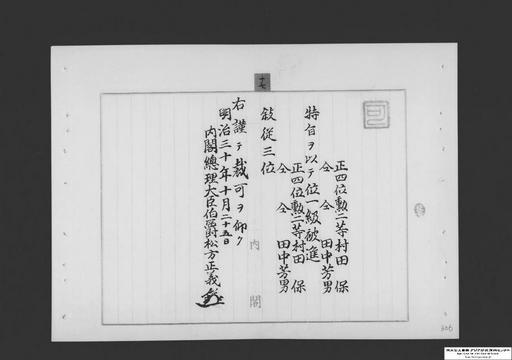 正四位勲二等村田保
仝 仝 田中芳男
特旨ヲ以テ位一級被進
正四位勲二等村田保
仝 仝 田中芳男
叙従三位
右謹テ裁可ヲ仰ク
明治三十年十月二十五日
内閣總理大臣伯爵松方正義
内閣
306